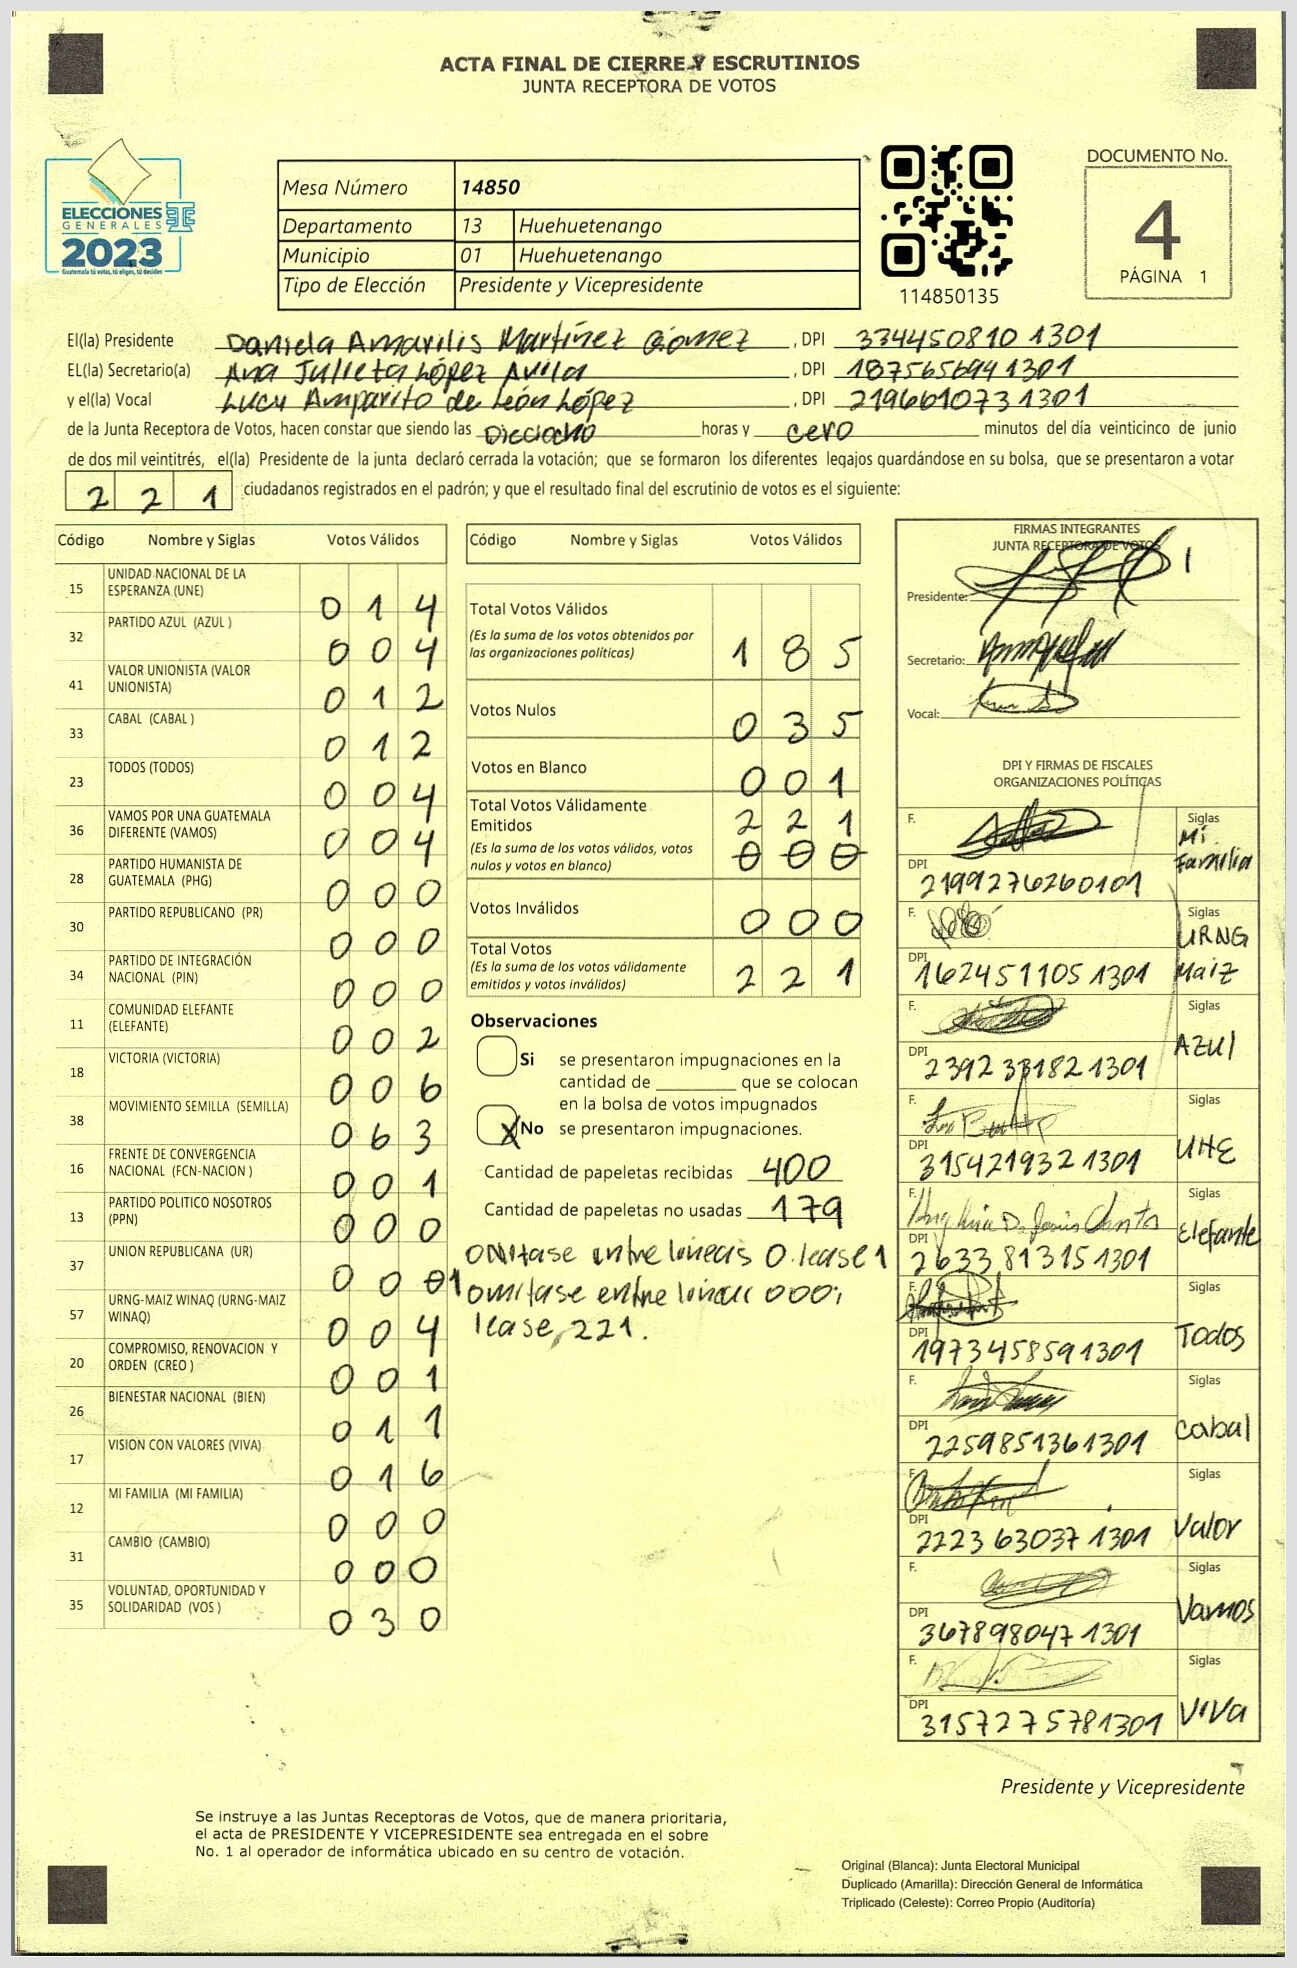 ACTA FINAL DE CIERRE Y ESCRUTINIOS
JUNTA RECEPTORA DE VOTOS
ELECCIONES
GENERALES
2023
Guatemala tú votas, tú eliges, tú decides
Mesa Número 14850
Departamento 13 Huehuetenango
Municipio 01 Huehuetenango
Tipo de Elección Presidente y Vicepresidente
114850135
DOCUMENTO No.
4
PÁGINA 1
El(la) Presidente Daniela Amarilis Martínez Gómez , DPI 334450810 1301
EL(la) Secretario(a) Ana Julieta López Avila , DPI 187565694 1301
y el(la) Vocal Lucy Amparito de León López , DPI 219661073 1301
de la Junta Receptora de Votos, hacen constar que siendo las Dieciocho horas y cero minutos del día veinticinco de junio
de dos mil veintitrés, el(la) Presidente de la junta declaró cerrada la votación; que se formaron los diferentes legajos guardándose en su bolsa, que se presentaron a votar
2 2 1 ciudadanos registrados en el padrón; y que el resultado final del escrutinio de votos es el siguiente:
Código Nombre y Siglas Votos Válidos
15 UNIDAD NACIONAL DE LA
ESPERANZA (UNE) 0 1 4
32 PARTIDO AZUL (AZUL ) 0 0 4
41 VALOR UNIONISTA (VALOR
UNIONISTA) 0 1 2
33 CABAL (CABAL ) 0 1 2
23 TODOS (TODOS) 0 0 4
36 VAMOS POR UNA GUATEMALA
DIFERENTE (VAMOS) 0 0 4
28 PARTIDO HUMANISTA DE
GUATEMALA (PHG) 0 0 0
30 PARTIDO REPUBLICANO (PR) 0 0 0
34 PARTIDO DE INTEGRACIÓN
NACIONAL (PIN) 0 0 0
11 COMUNIDAD ELEFANTE
(ELEFANTE) 0 0 2
18 VICTORIA (VICTORIA) 0 0 6
38 MOVIMIENTO SEMILLA (SEMILLA) 0 6 3
16 FRENTE DE CONVERGENCIA
NACIONAL (FCN-NACION ) 0 0 1
13 PARTIDO POLITICO NOSOTROS
(PPN) 0 0 0
37 UNION REPUBLICANA (UR) 0 0 0 1
57 URNG-MAIZ WINAQ (URNG-MAIZ
WINAQ) 0 0 4
20 COMPROMISO, RENOVACION Y
ORDEN (CREO ) 0 0 1
26 BIENESTAR NACIONAL (BIEN) 0 1 1
17 VISION CON VALORES (VIVA) 0 1 6
12 MI FAMILIA (MI FAMILIA) 0 0 0
31 CAMBIO (CAMBIO) 0 0 0
35 VOLUNTAD, OPORTUNIDAD Y
SOLIDARIDAD (VOS ) 0 3 0
Código Nombre y Siglas Votos Válidos
Total Votos Válidos
(Es la suma de los votos obtenidos por
las organizaciones políticas) 1 8 5
Votos Nulos 0 3 5
Votos en Blanco 0 0 1
Total Votos Válidamente
Emitidos 2 2 1
(Es la suma de los votos válidos, votos
nulos y votos en blanco) 0 0 0
Votos Inválidos 0 0 0
Total Votos
(Es la suma de los votos válidamente
emitidos y votos inválidos) 2 2 1
Observaciones
Si se presentaron impugnaciones en la
cantidad de ________ que se colocan
en la bolsa de votos impugnados
X No se presentaron impugnaciones.
Cantidad de papeletas recibidas 400
Cantidad de papeletas no usadas 179
omitase entre lineas 0. lease 1
omitase entre lineas 000;
lease, 221.
FIRMAS INTEGRANTES
JUNTA RECEPTORA DE VOTOS
Presidente:
Secretario:
Vocal:
DPI Y FIRMAS DE FISCALES
ORGANIZACIONES POLÍTICAS
F. Siglas
Mi
Familia
DPI 2199276260101
F. Siglas
URNG
Maiz
DPI 162451105 1301
F. Siglas
AZUl
DPI 2392 33182 1301
F. Siglas
UNE
DPI 315421932 1301
F. Siglas
Elefante
DPI 2633 81315 1301
F. Siglas
Todos
DPI 1973458591301
F. Siglas
Cabal
DPI 2259851361301
F. Siglas
Valor
DPI 2223 63037 1301
F. Siglas
Vamos
DPI 367898047 1301
F. Siglas
VIVa
DPI 3157275781301
Presidente y Vicepresidente
Se instruye a las Juntas Receptoras de Votos, que de manera prioritaria,
el acta de PRESIDENTE Y VICEPRESIDENTE sea entregada en el sobre
No. 1 al operador de informática ubicado en su centro de votación.
Original (Blanca): Junta Electoral Municipal
Duplicado (Amarilla): Dirección General de Informática
Triplicado (Celeste): Correo Propio (Auditoría)